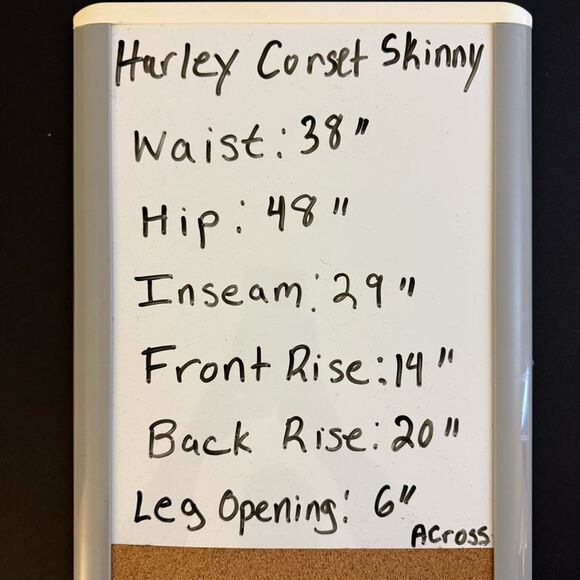 Harley Corset Skinny
Waist: 38"
Hip: 48"
Inseam: 29"
Front Rise: 14"
Back Rise: 20"
Leg Opening: 6"
Across